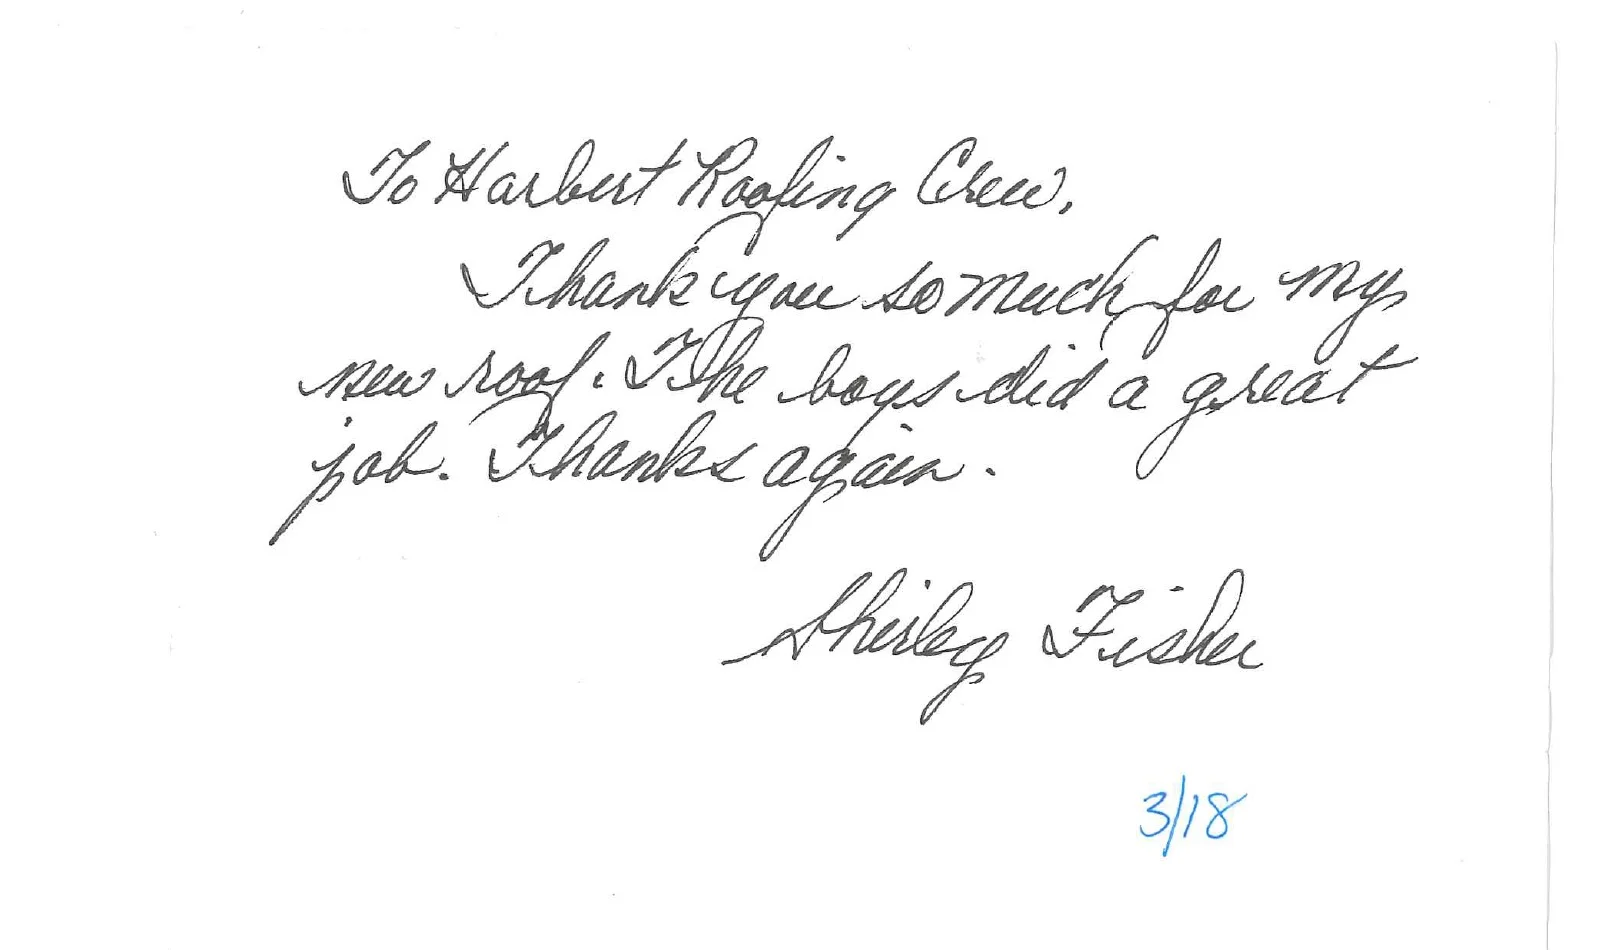 To Harbert Roofing Crew,
Thank you so much for my
new roof. The boys did a great
job. Thanks again.
Shirley Fisher
3/18